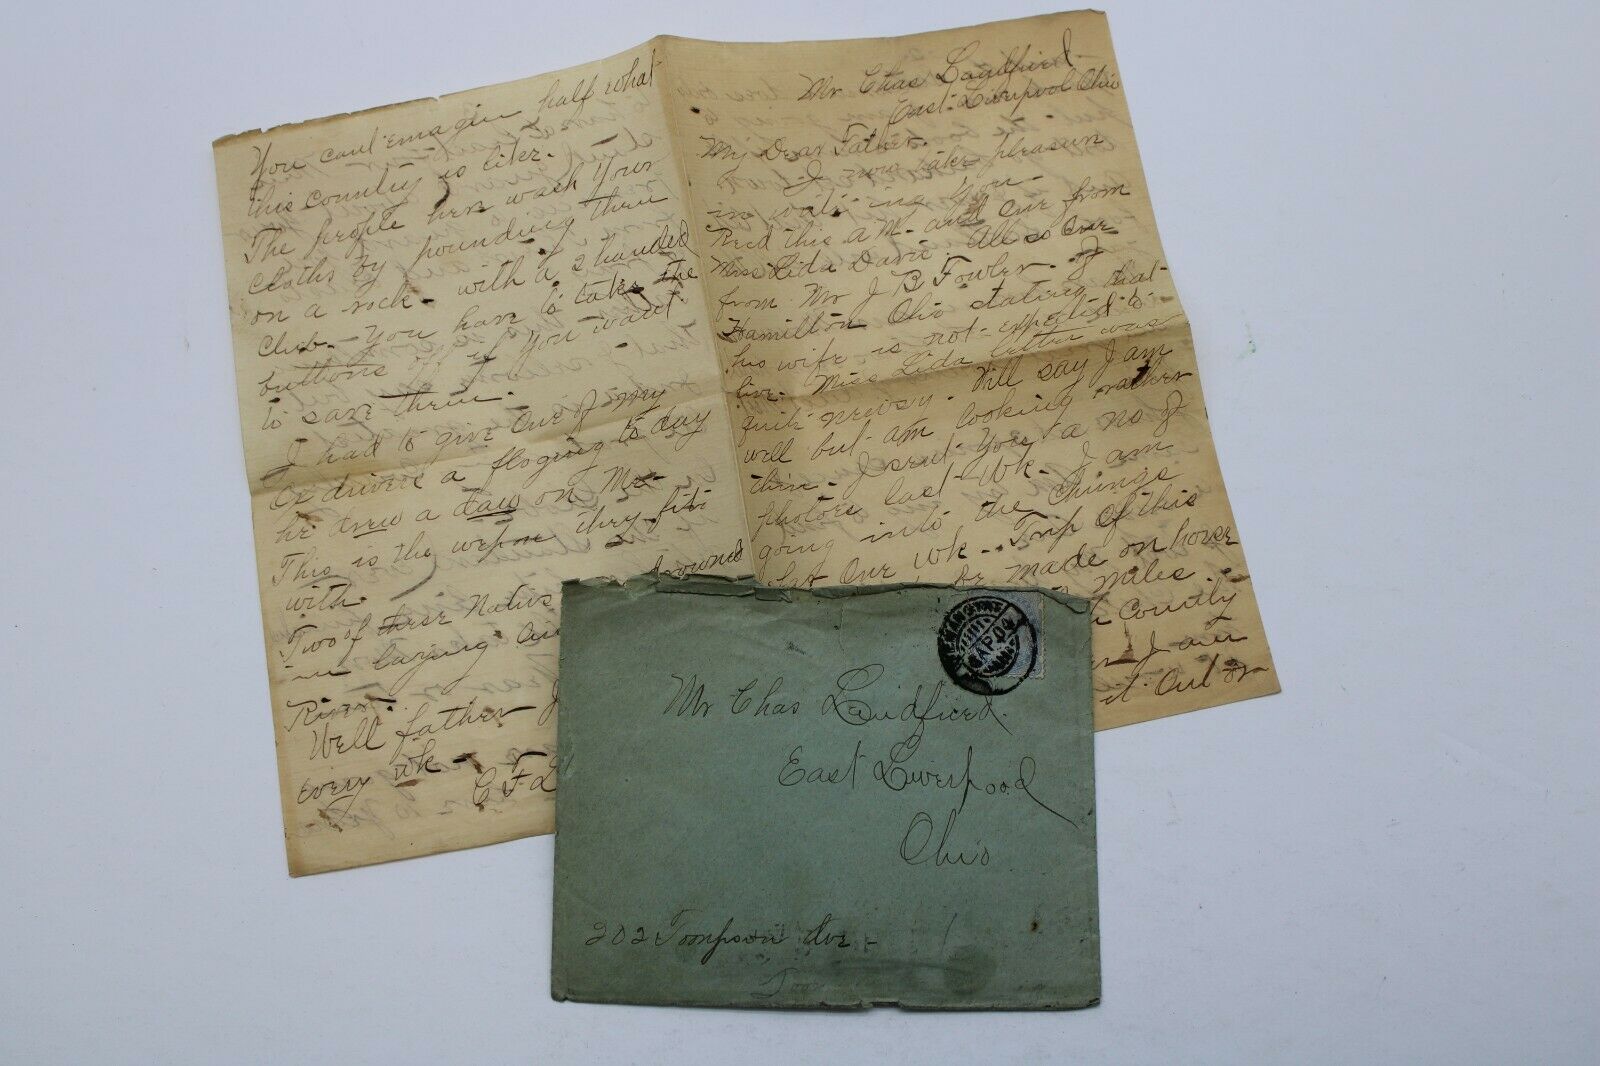 Mr Chas Laudfired.
East Liverpool Ohio
My Dear Father.
I now take pleasurn
in writeing You
Recd this a M. and One from
Miss Lida Davie. All so One
from Mr J B Fowler. of
Hamillton Ohio stating that
his wife is not expected to
live. Miss Lida letter was
quite newsy. Will say I am
well but am looking rather
thin. I sent You a no of
photoes last Wk. I am
going into the
One Wk. Trip of this
be made on horse
miles
County
I am
it Out or
You cant emagin half what
this country is like.
The people hern wash Your
cloths by pounding them
on a rock. with a 2 handed
club. You have to take the
buttons off if You want
to save them.
I had to give One of mey
Ox drivers a floging to day
he drew a daw on Me.
This is the wepon they fite
with.
Two of these Nativs drowned
in
River.
Well father I
every Wk. C F L
Mr Chas Laudfired.
East Liverpool
Ohio
202 Toompson Ave
AP 04